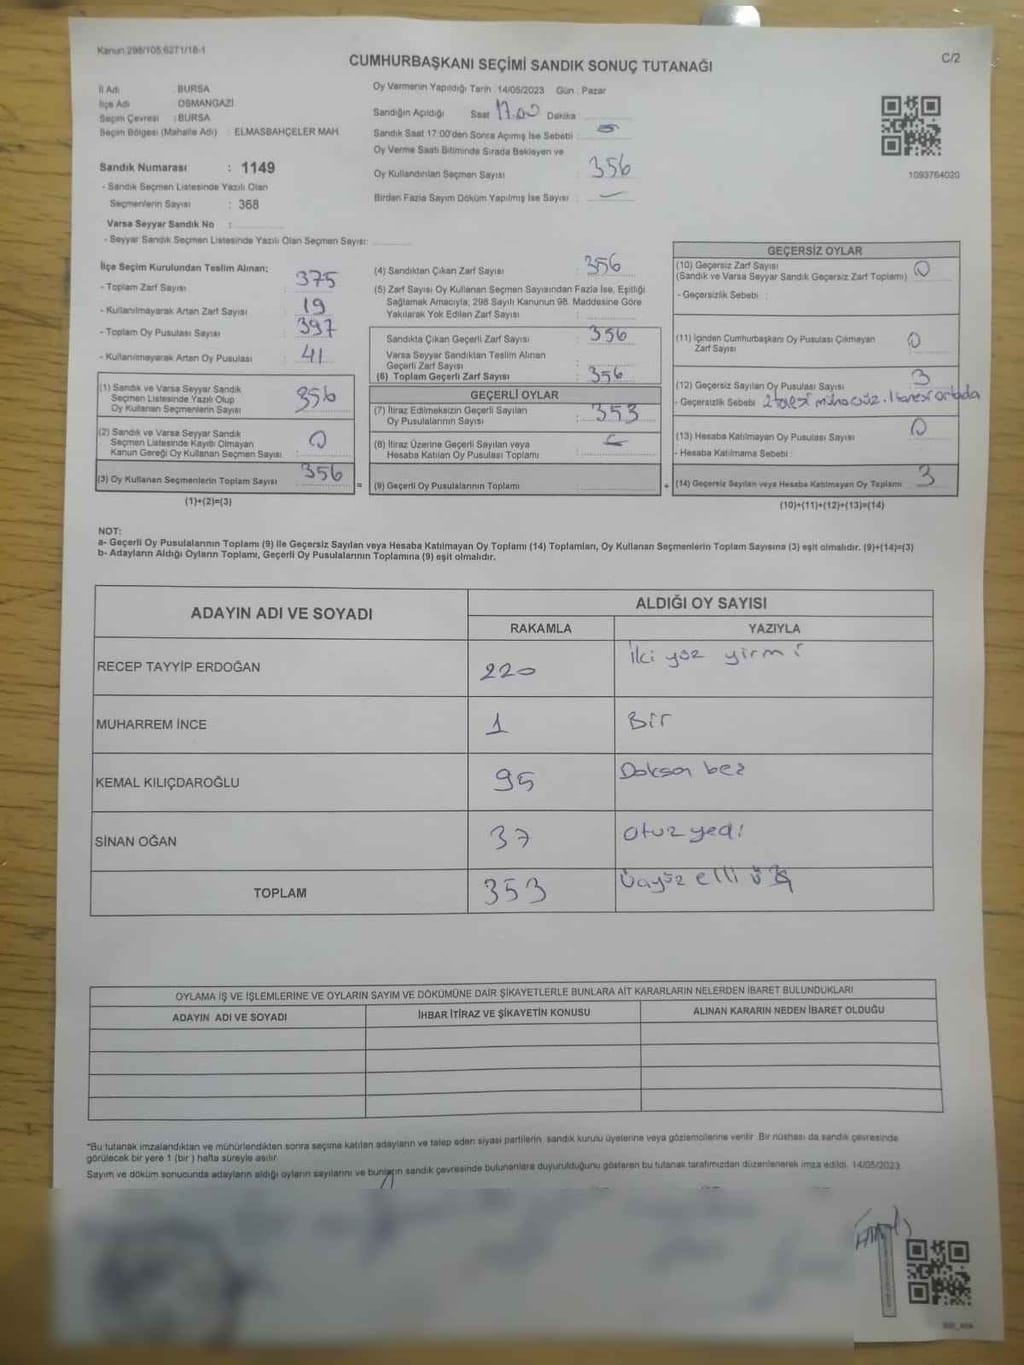 Kanun:298/105;6271/18-1
C/2
CUMHURBAŞKANI SEÇİMİ SANDIK SONUÇ TUTANAĞI
İl Adı : BURSA
İlçe Adı : OSMANGAZİ
Seçim Çevresi : BURSA
Seçim Bölgesi (Mahalle Adı) : ELMASBAHÇELER MAH.
Sandık Numarası : 1149
- Sandık Seçmen Listesinde Yazılı Olan
Seçmenlerin Sayısı : 368
Varsa Seyyar Sandık No :
- Seyyar Sandık Seçmen Listesinde Yazılı Olan Seçmen Sayısı:
Oy Vermenin Yapıldığı Tarih 14/05/2023 Gün : Pazar
Sandığın Açıldığı Saat 17.00 Dakika :
Sandık Saat 17:00'den Sonra Açımış İse Sebebi :
Oy Verme Saati Bitiminde Sırada Bekleyen ve
Oy Kullandırılan Seçmen Sayısı : 356
Birden Fazla Sayım Döküm Yapılmış İse Sayısı : —
1093764020
İlçe Seçim Kurulundan Teslim Alınan;
- Toplam Zarf Sayısı : 375
- Kullanılmayarak Artan Zarf Sayısı : 19
- Toplam Oy Pusulası Sayısı : 397
- Kullanılmayarak Artan Oy Pusulası : 41
(1) Sandık ve Varsa Seyyar Sandık
Seçmen Listesinde Yazılı Olup
Oy Kullanan Seçmenlerin Sayısı : 356
(2) Sandık ve Varsa Seyyar Sandık
Seçmen Listesinde Kayıtlı Olmayan
Kanun Gereği Oy Kullanan Seçmen Sayısı : 0
(3) Oy Kullanan Seçmenlerin Toplam Sayısı : 356
(1)+(2)=(3)
(4) Sandıktan Çıkan Zarf Sayısı : 356
(5) Zarf Sayısı Oy Kullanan Seçmen Sayısından Fazla İse, Eşitliği
Sağlamak Amacıyla; 298 Sayılı Kanunun 98. Maddesine Göre
Yakılarak Yok Edilen Zarf Sayısı :
Sandıkta Çıkan Geçerli Zarf Sayısı : 356
Varsa Seyyar Sandıktan Teslim Alınan
Geçerli Zarf Sayısı :
(6) Toplam Geçerli Zarf Sayısı : 356
GEÇERLİ OYLAR
(7) İtiraz Edilmeksizin Geçerli Sayılan
Oy Pusulalarının Sayısı : 353
(8) İtiraz Üzerine Geçerli Sayılan veya
Hesaba Katılan Oy Pusulası Toplamı :
= (9) Geçerli Oy Pusulalarının Toplamı : +
GEÇERSİZ OYLAR
(10) Geçersiz Zarf Sayısı
(Sandık ve Varsa Seyyar Sandık Geçersiz Zarf Toplamı) : 0
- Geçersizlik Sebebi :
(11) İçinden Cumhurbaşkanı Oy Pusulası Çıkmayan
Zarf Sayısı : 0
(12) Geçersiz Sayılan Oy Pusulası Sayısı : 3
- Geçersizlik Sebebi : 2 tanesi mühürsüz. 1 tanesi ortada
(13) Hesaba Katılmayan Oy Pusulası Sayısı : 0
- Hesaba Katılmama Sebebi :
(14) Geçersiz Sayılan veya Hesaba Katılmayan Oy Toplamı : 3
(10)+(11)+(12)+(13)=(14)
NOT:
a- Geçerli Oy Pusulalarının Toplamı (9) ile Geçersiz Sayılan veya Hesaba Katılmayan Oy Toplamı (14) Toplamları, Oy Kullanan Seçmenlerin Toplam Sayısına (3) eşit olmalıdır. (9)+(14)=(3)
b- Adayların Aldığı Oyların Toplamı, Geçerli Oy Pusulalarının Toplamına (9) eşit olmalıdır.
ADAYIN ADI VE SOYADI
ALDIĞI OY SAYISI
RAKAMLA YAZIYLA
RECEP TAYYİP ERDOĞAN 220 İki yüz yirmi
MUHARREM İNCE 1 Bir
KEMAL KILIÇDAROĞLU 95 Doksan beş
SİNAN OĞAN 37 otuz yedi
TOPLAM 353 Üçyüz elli üç
OYLAMA İŞ VE İŞLEMLERİNE VE OYLARIN SAYIM VE DÖKÜMÜNE DAİR ŞİKAYETLERLE BUNLARA AİT KARARLARIN NELERDEN İBARET BULUNDUKLARI
ADAYIN ADI VE SOYADI İHBAR İTİRAZ VE ŞİKAYETİN KONUSU ALINAN KARARIN NEDEN İBARET OLDUĞU
*Bu tutanak imzalandıktan ve mühürlendikten sonra seçime katılan adayların ve talep eden siyasi partilerin sandık kurulu üyelerine veya gözlemcilerine verilir. Bir nüshası da sandık çevresinde
görülecek bir yere 1 (bir) hafta süreyle asılır.
Sayım ve döküm sonucunda adayların aldığı oyların sayılarını ve bunların sandık çevresinde bulunanlara duyurulduğunu gösteren bu tutanak tarafımızdan düzenlenerek imza edildi. 14/05/2023